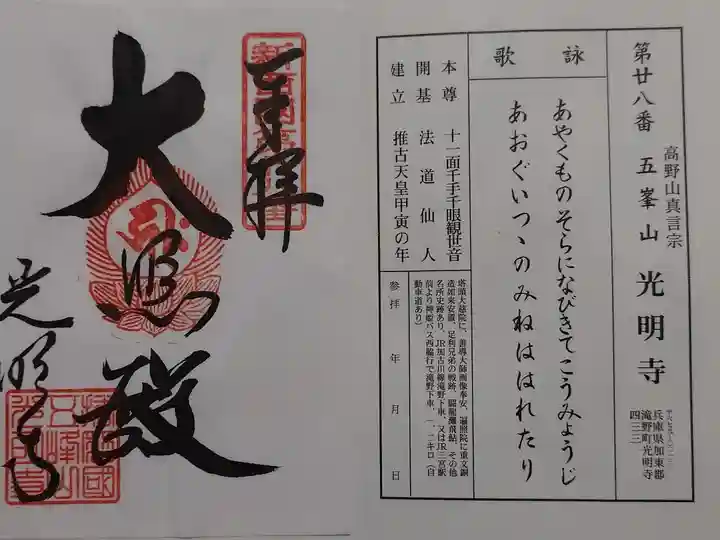 第廿八番 五峯山 光明寺
高野山真言宗
兵庫県加東郡
滝野町光明寺
四三三
詠歌
あやくものそらになびきてこうみょうじ
あおぐいつゝのみねははれたり
本尊 十一面千手千眼観世音
開基 法道仙人
建立 推古天皇甲寅の年
塔頭大慈院に、善導大師画像奉安、遍照院に重文銅
造如来安置、足利兄弟の戦跡、闘龍灘飛鮎、その他
名所史跡あり、JR加古川線滝野下車、又はJR三宮駅
前より神姫バス西脇行で滝野下車、一、二キロ(自
動車道あり)
参拝 年 月 日
奉拝
大悲殿
光明寺